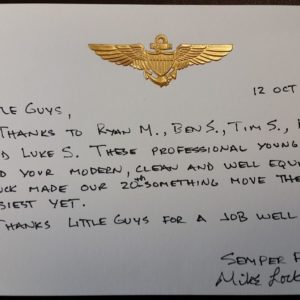 12 OCT
LE GUYS,
THANKS TO RYAN M., BEN S., TIM S.,
D LUKE S. THESE PROFESSIONAL YOUNG
D YOUR MODERN, CLEAN AND WELL EQUI
UCK MADE OUR 20TH SOMETHING MOVE THE
SIEST YET.
THANKS LITTLE GUYS FOR A JOB WELL
SEMPER F
Mike Lock